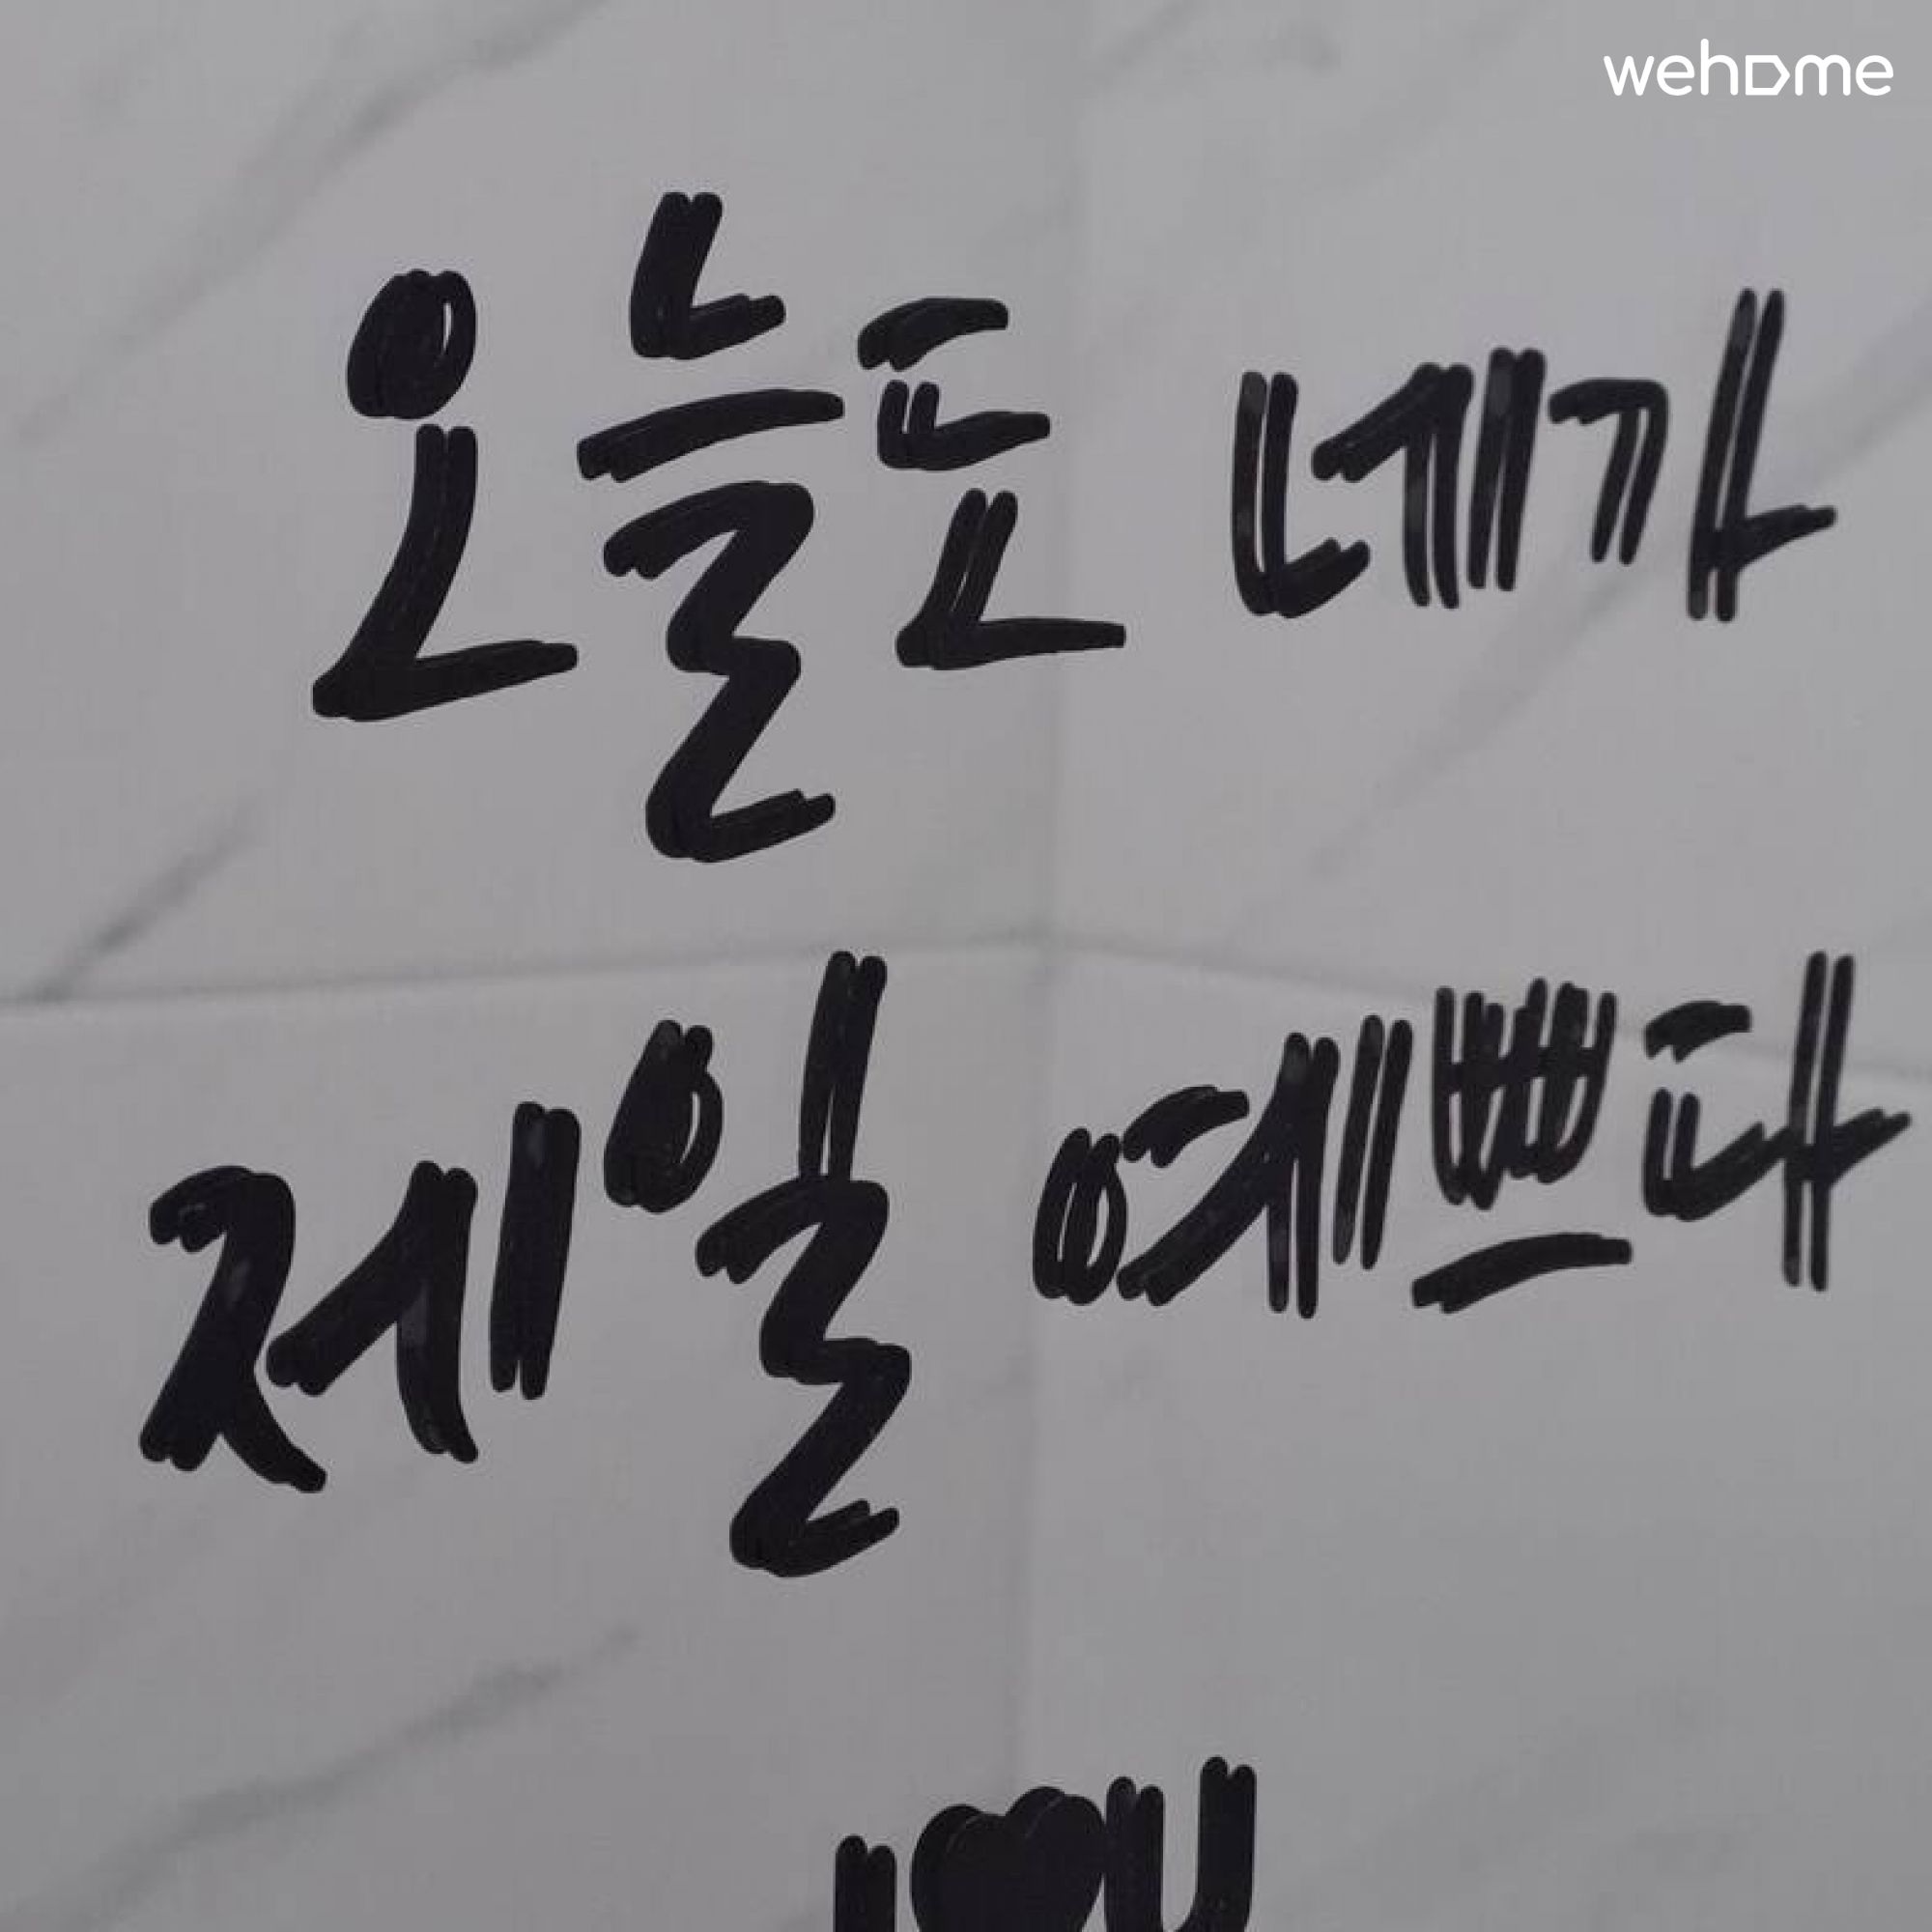 wehome
오늘도 네가
제일 예쁘다
I♥U